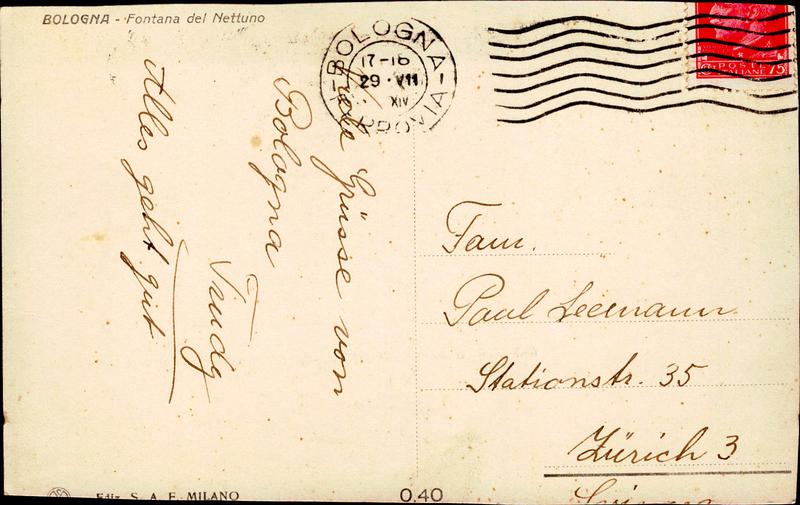 BOLOGNA - Fontana del Nettuno
BOLOGNA
17-18
29 · VII
XIV
FERROVIA
POSTE
ITALIANE 75
Viele Grüsse von
Bologna
Trudy
Alles geht gut
Fam.
Paul Leemann
Stationstr. 35
Zürich 3
Ediz. S. A. F. MILANO
0.40